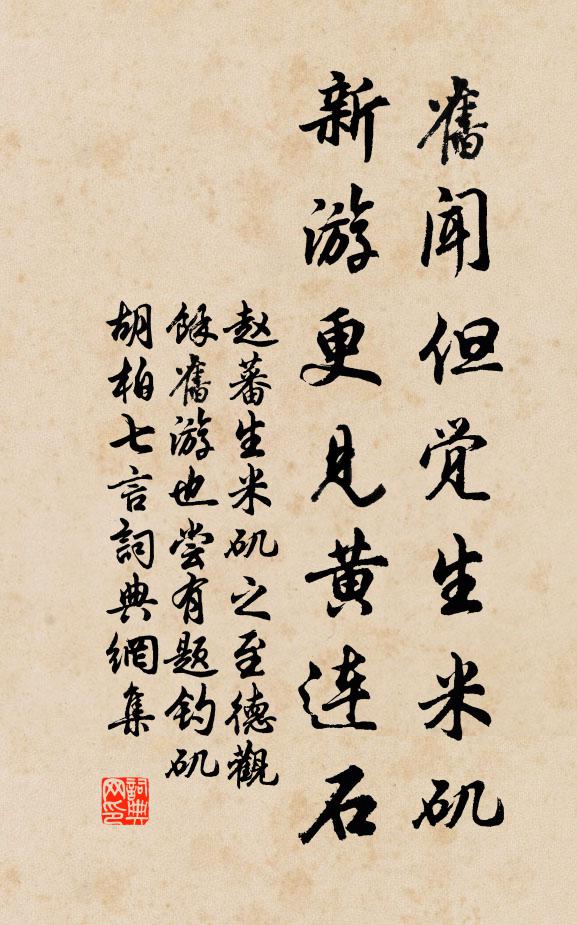 舊闻但觉生米矶
新游更见黄连石
赵蕃生米矶之至德觀
餘舊游也尝有题钓矶
胡柏七言詞典網集
詞典网印